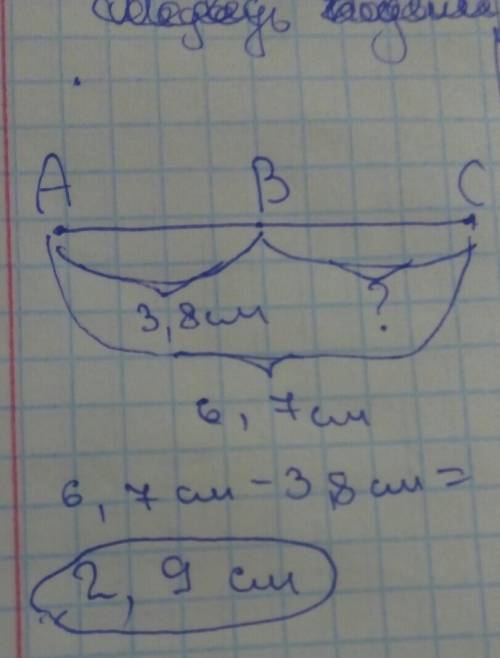 A B C
3,8см ?
6,7см
6,7см - 3,8см =
2,9 см